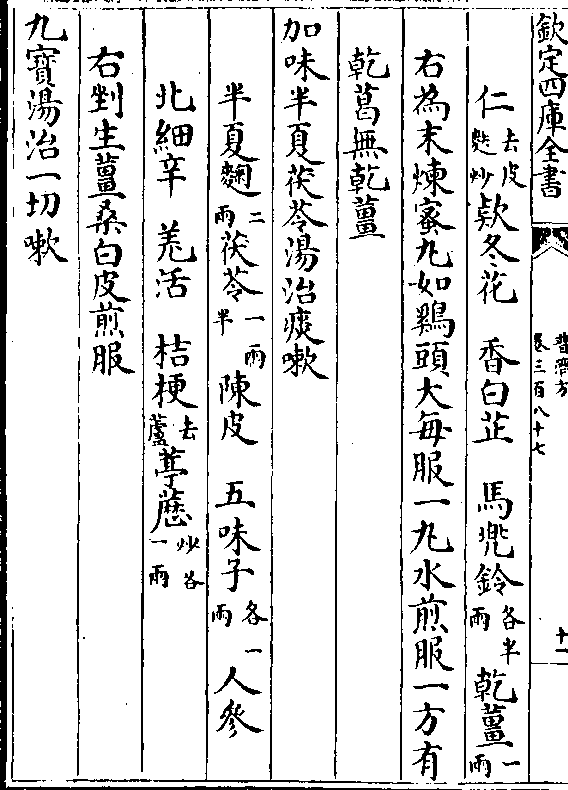 欽定四庫全書
普濟方
卷三百八十七
十一
仁去皮麩炒欵冬花　香白芷　馬兜鈴各半兩乾薑一兩
右為末煉蜜丸如鷄頭大每服一丸水煎服一方有
乾葛無乾薑
加味半夏茯苓湯治痰嗽
半夏麯二兩茯苓一兩半陳皮　五味子各一兩人參
北細辛　羗活　桔梗去蘆葶藶炒各一兩
右剉生薑桑白皮煎服
九寳湯治一切嗽